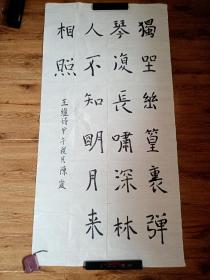 獨坐幽篁裏彈
琴復長嘯深林
人不知明月来
相照
王維詩甲午月陳